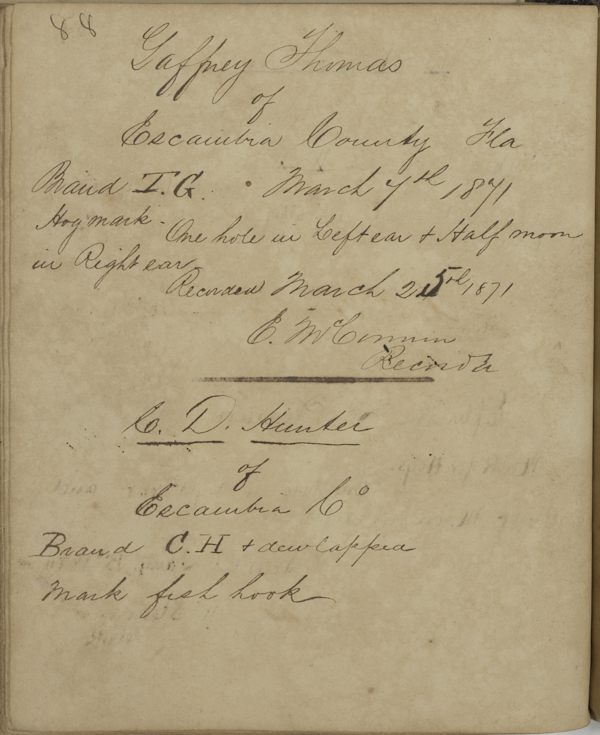 88
Gaffney Thomas
of
Escambia County Fla
Brand T.G. March 7th 1871
Hog mark. One hole in Left ear + Half moon
in Right ear
Recorded March 25th 1871
E. McConnin
Recorder
C. D. Hunter
of
Escambia Co
Brand C.H + dewlapped
Mark fish hook